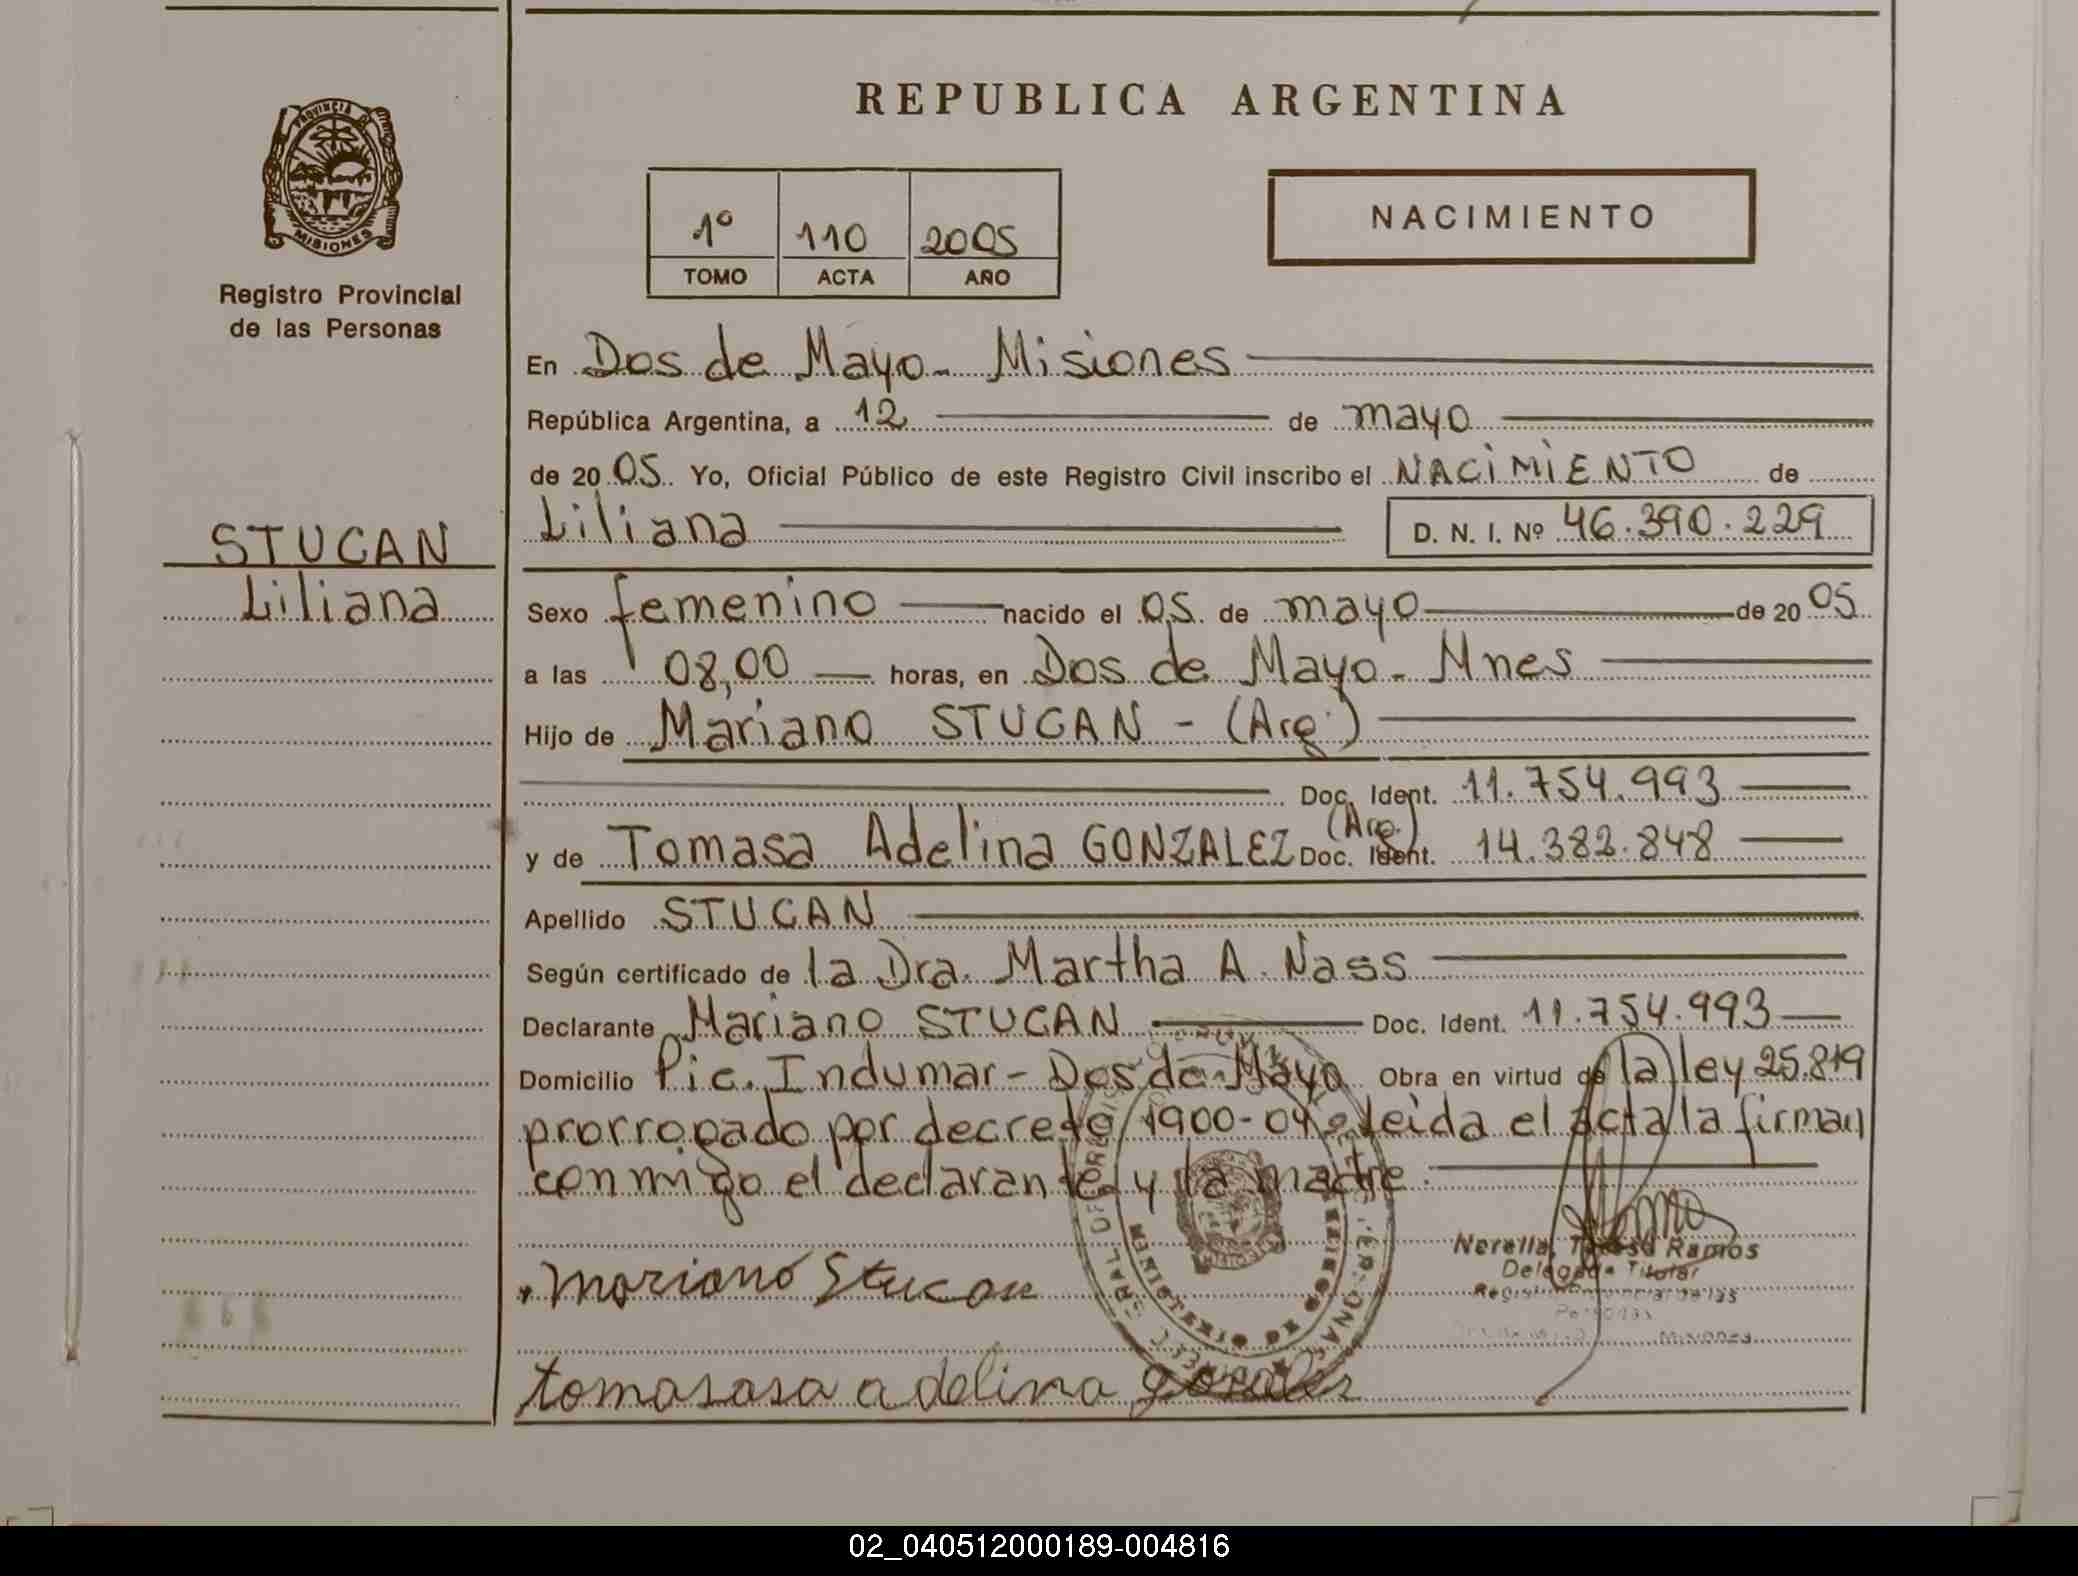 REPUBLICA ARGENTINA
PROVINCIA DE
MISIONES
Registro Provincial
de las Personas
1º 110 2005
TOMO ACTA AÑO
NACIMIENTO
STUCAN
Liliana
En Dos de Mayo - Misiones
República Argentina, a 12 de mayo
de 2005. Yo, Oficial Público de este Registro Civil inscribo el NACIMIENTO de
Liliana D. N. I. Nº 46.390.229
Sexo femenino nacido el 05 de mayo de 2005
a las 08,00 horas, en Dos de Mayo - Mnes
Hijo de Mariano STUCAN - (Arg.)
Doc. Ident. 11.754.993
y de Tomasa Adelina GONZALEZ (Arg.) Doc. Ident. 14.382.848
Apellido STUCAN
Según certificado de la Dra. Martha A. Nass
Declarante Mariano STUCAN Doc. Ident. 11.754.993
Domicilio Pic. Indumar - Dos de Mayo Obra en virtud de la ley 25.819
prorrogado por decreto 1900-04 leida el acta la firman
conmigo el declarante y la madre.
Mariano Stucan
Ramos
Delegada Titular
Registro Provincial de las
Personas
Misiones
tomasasa adelina
02_040512000189-004816